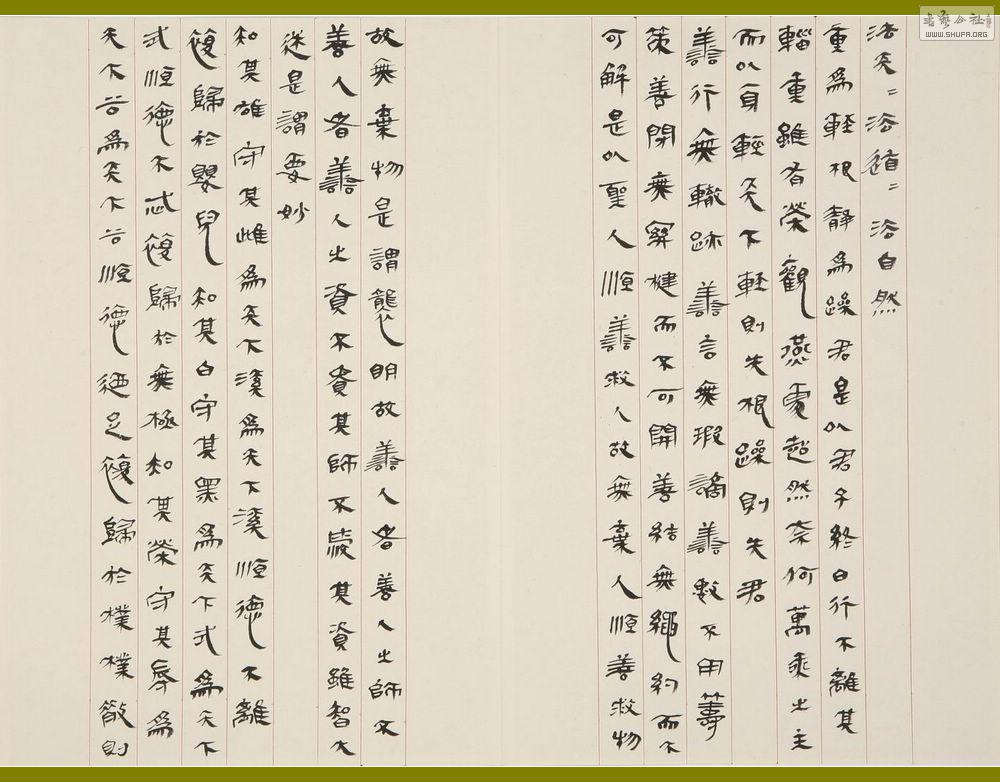 法天〻法道〻法自然
重為輕根靜為躁君是以君子終日行不離其
輜重雖有榮觀燕處超然奈何萬乘之主
而以身輕天下輕則失根躁則失君
善行無轍跡善言無瑕謫善數不用籌
策善閉無關楗而不可開善結無繩約而不
可解是以聖人順善救人故無棄人順善救物
故無棄物是謂襲明故善人者善人之師不
善人者善人之資不貴其師不愛其資雖智大
迷是謂要妙
知其雄守其雌為天下溪為天下溪順德不離
復歸於嬰兒知其白守其黑為天下式為天下
式順德不忒復歸於無極知其榮守其辱為
天下谷為天下谷順德迺足復歸於樸樸散則
書藝公社
WWW.SHUFA.ORG